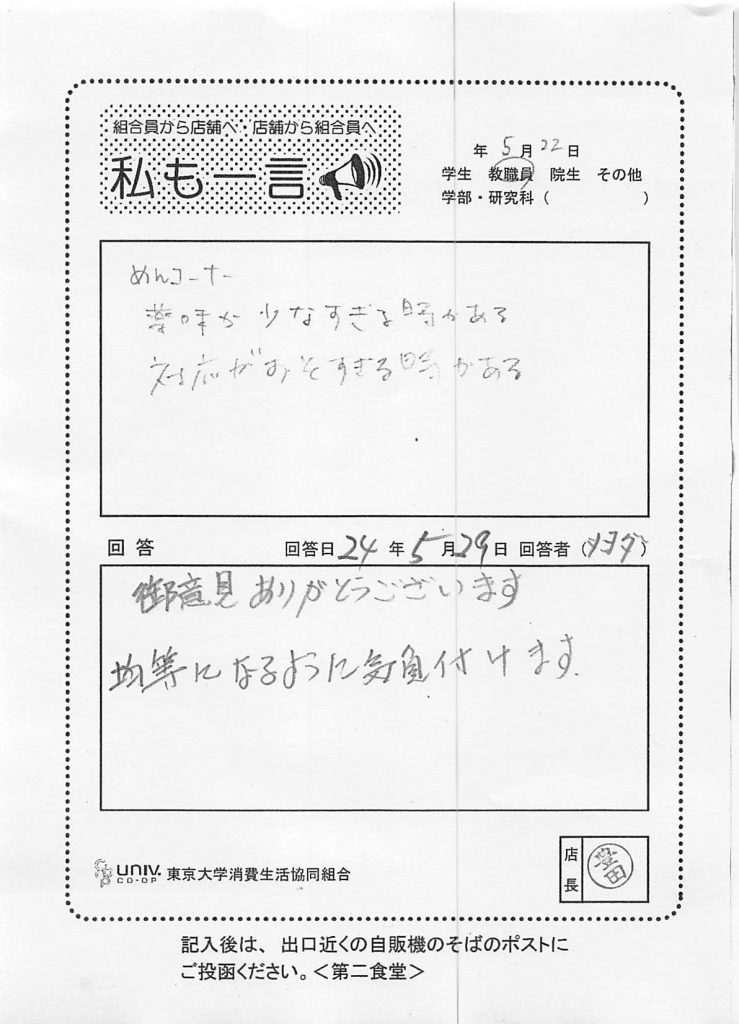 組合員から店舗へ・店舗から組合員へ
私も一言
年 5月 22日
学生 教職員 院生 その他
学部・研究科（ ）
めんコーナー
薬味が少なすぎる時がある
対応がおそすぎる時がある
回答 回答日 24 年 5 月 29 日 回答者（ ）
御意見ありがとうございます
均等になるように気負付けます.
UNIV. CO-OP 東京大学消費生活協同組合
店長 豊田
記入後は、出口近くの自販機のそばのポストに
ご投函ください。＜第二食堂＞